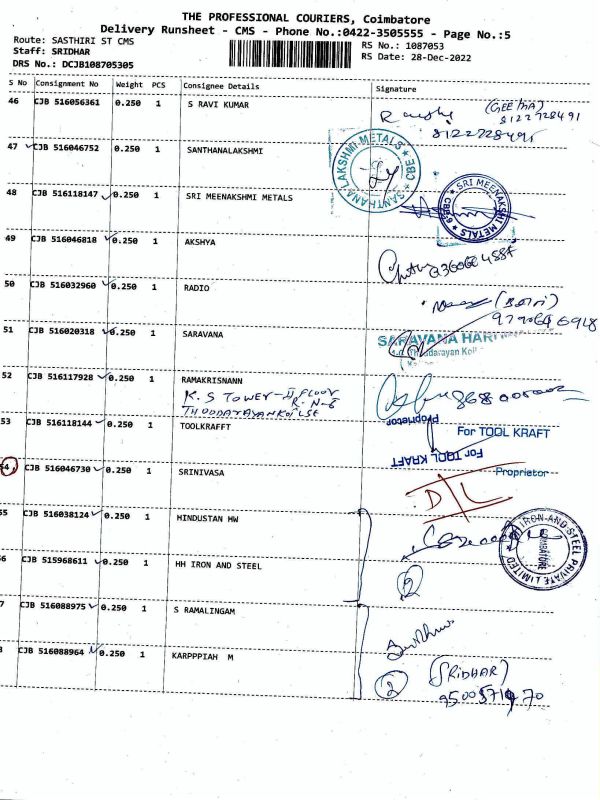 THE PROFESSIONAL COURIERS, Coimbatore
Delivery Runsheet - CMS - Phone No.:0422-3505555 - Page No.:5
Route: SASTHIRI ST CMS
RS No.: 1087053
Staff: SRIDHAR
RS Date: 28-Dec-2022
DRS No.: DCJB108705305
S No Consignment No Weight PCS Consignee Details Signature
46 CJB 516056361 0.250 1 S RAVI KUMAR
(GEETHA)
8122728491
8122728491
47 CJB 516046752 0.250 1 SANTHANALAKSHMI
SANTHANA LAKSHMI METALS ★ CBE ★
48 CJB 516118147 0.250 1 SRI MEENAKSHMI METALS
SRI MEENAKSHI METALS
49 CJB 516046818 0.250 1 AKSHYA
50 CJB 516032960 0.250 1 RADIO
51 CJB 516020318 0.250 1 SARAVANA
SARAVANA
52 CJB 516117928 0.250 1 RAMAKRISNANN
K.S TOWER-II FLOOR
R.N-6
53 CJB 516118144 0.250 1 TOOLKRAFFT
Proprietor
For TOOL KRAFT
For TOOL KRAFT
Proprietor
54 CJB 516046730 0.250 1 SRINIVASA
D/L
55 CJB 516038124 0.250 1 HINDUSTAN HW
IRON AND STEEL PRIVATE LIMITED ★
COIMBATORE
6 CJB 515968611 0.250 1 HH IRON AND STEEL
2
7 CJB 516088975 0.250 1 S RAMALINGAM
8 CJB 516088964 0.250 1 KARPPPIAH M
2
(SRIDHAR)